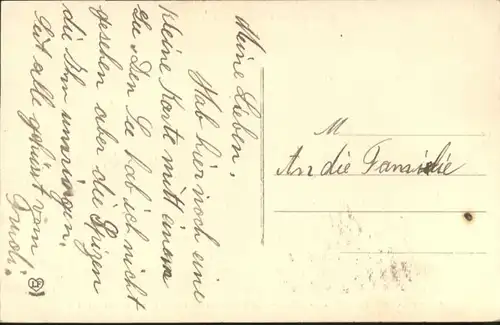 Meine Lieben.
Hab hier noch eine
kleine Karte mitt einem
See. Den See hab ich nicht
gesehen aber die Spizen
die Ihm umringen.
Seit alle geküsst vom
Trudi.
M
An die Familie